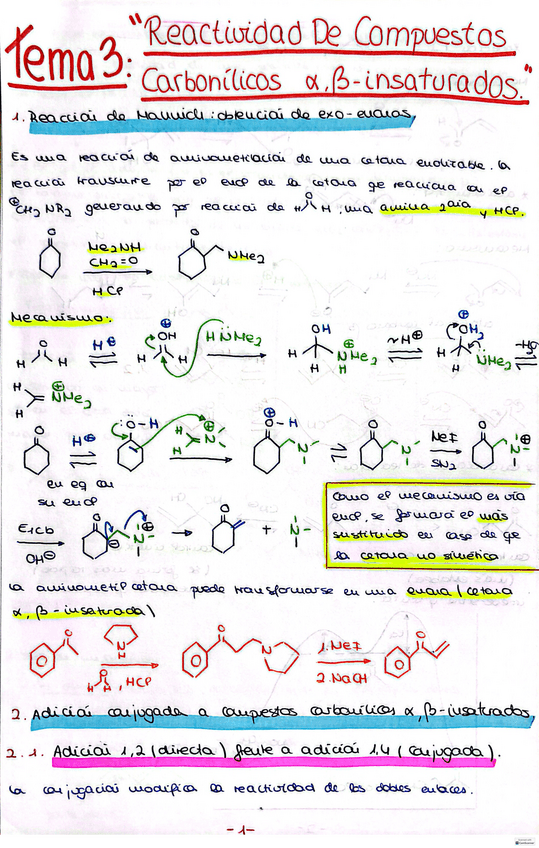 Tema 3: "Reactividad De Compuestos
Carbonílicos α,β-insaturados."
1. Reacción de Mannich: obtención de exo-enonas,
Es una reacción de aminometilación de una cetona enolizable. La
reacción transcurre por el enol de la cetona qe reacciona con el
⊕CH2 NR2 generando por reacción de H O H, una amina 2aria y HCl.
O O NMe2
Me2NH
CH2=O
HCl
Mecanismo:
O H H H⊕ ⊕OH H H H N̈Me2 OH H H ⊕NMe2 H ~H⊕ ⊕OH2 H H N̈Me2 -H2O
H H ⊕NMe2
O H⊕ :Ö-H H H ⊕N ⊕O-H N O N MeI SN2 O N⊕
en eq con
su enol
E1cb
OH⊖
O ⊖ N⊕ → O + N
Como el mecanismo es vía
enol, se formará el más
sustituido en caso de qe
la cetona no simética
La aminometil cetona puede transformarse en una enona (cetona
α,β-insaturada)
O N H O H H, HCl O N 1. MeI 2. NaOH O
2. Adición conjugada a compestos carbonílicos α,β-insaturados,
2.1. Adición 1,2 (directa) frente a adición 1,4 (conjugada).
La conjugación modifica la reactividad de los dobles enlaces.
-1-